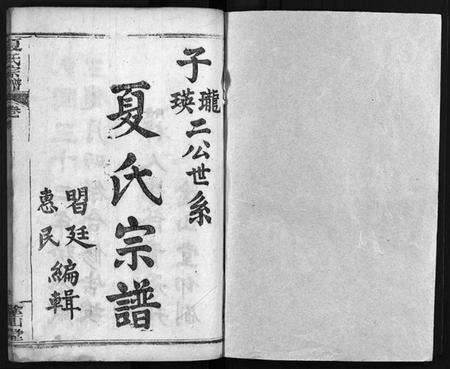 子瓏瑛二公世系
夏氏宗譜
習廷惠民編輯
夏氏宗譜